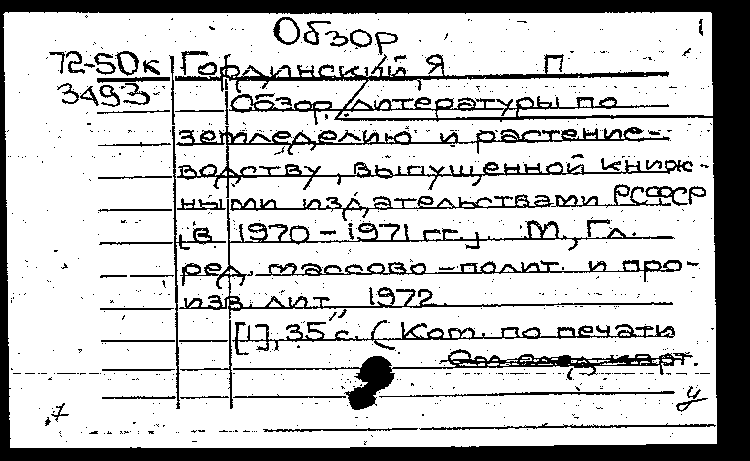 Обзор 1
72-50к Гордлинский, Я П
3493 Обзор литературы по
земледелию и растение-
водству, выпущенной книж-
ными издательствами РСФСР
[в 1970-1971 гг.] М., Гл.
ред. массово-полит. и про-
изв. лит., 1972.
[1], 35 с. (Ком. по печати
См след. карт.
,7 у